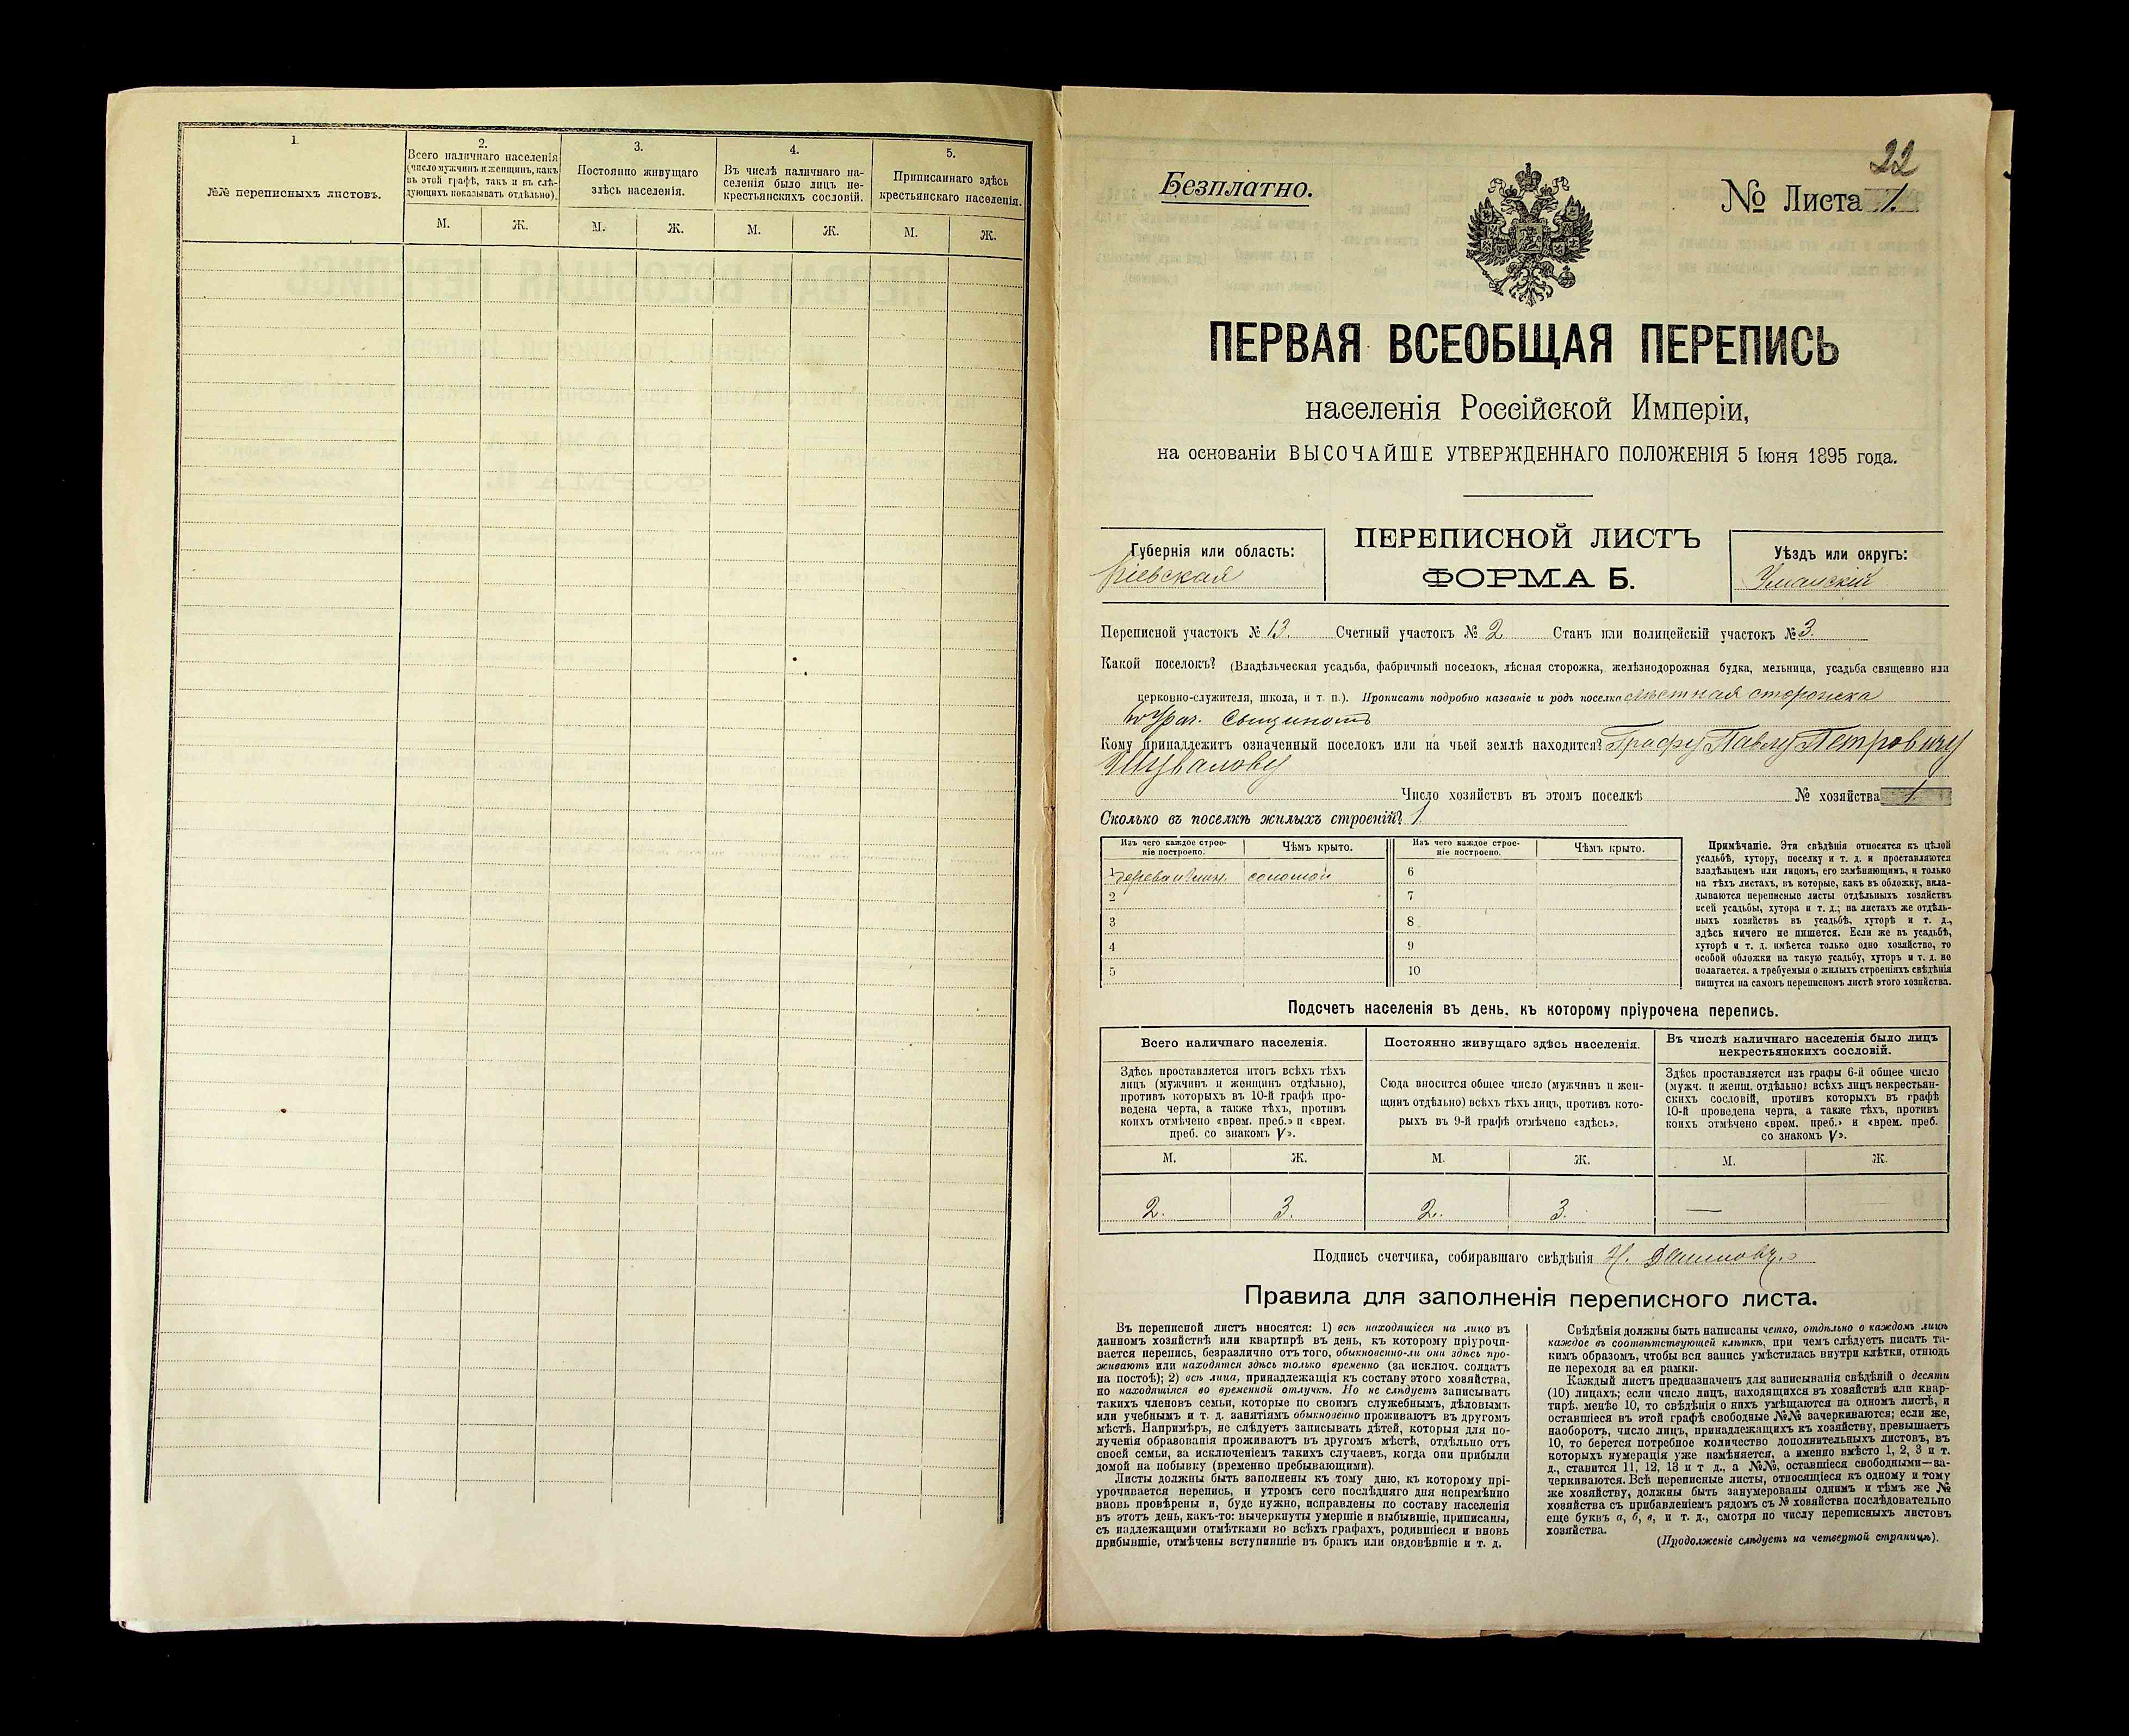 1.
№№ переписныхъ листовъ.
2.
Всего наличнаго населенія
(число мужчинъ и женщинъ, какъ
въ этой графѣ, такъ и въ слѣ-
дующихъ показывать отдѣльно).
3.
Постоянно живущаго
здѣсь населенія.
4.
Въ числѣ наличнаго на-
селенія было лицъ не-
крестьянскихъ сословій.
5.
Приписаннаго здѣсь
крестьянскаго населенія.
М. Ж. М. Ж. М. Ж. М. Ж.
22
Безплатно.
№ Листа 1.
ПЕРВАЯ ВСЕОБЩАЯ ПЕРЕПИСЬ
населенія Россійской Имперіи,
на основаніи ВЫСОЧАЙШЕ УТВЕРЖДЕННАГО ПОЛОЖЕНІЯ 5 Іюня 1895 года.
Губернія или область:
Кіевская
ПЕРЕПИСНОЙ ЛИСТЪ
ФОРМА Б.
Уѣздъ или округъ:
Уманскій
Переписной участокъ № 13. Счетный участокъ № 2 Станъ или полицейскій участокъ № 3.
Какой поселокъ? (Владѣльческая усадьба, фабричный поселокъ, лѣсная сторожка, желѣзнодорожная будка, мельница, усадьба священно или
церковно-служителя, школа, и т. п.). Прописать подробно названіе и родъ поселка сторожка
Кому принадлежитъ означенный поселокъ или на чьей землѣ находится? Графу Павлу Петровичу
Шувалову
Число хозяйствъ въ этомъ поселкѣ № хозяйства 1.
Сколько въ поселкѣ жилыхъ строеній? 1
Изъ чего каждое строе-
ніе построено.
Чѣмъ крыто.
Изъ чего каждое строе-
ніе построено.
Чѣмъ крыто.
1 соломой 6
2 7
3 8
4 9
5 10
Примѣчаніе. Эти свѣдѣнія относятся къ цѣлой
усадьбѣ, хутору, поселку и т. д. и проставляются
владѣльцемъ или лицомъ, его замѣняющимъ, и только
на тѣхъ листахъ, въ которые, какъ въ обложку, вкла-
дываются переписные листы отдѣльныхъ хозяйствъ
всей усадьбы, хутора и т. д.; на листахъ же отдѣль-
ныхъ хозяйствъ въ усадьбѣ, хуторѣ и т. д.,
здѣсь ничего не пишется. Если же въ усадьбѣ,
хуторѣ и т. д. имѣется только одно хозяйство, то
особой обложки на такую усадьбу, хуторъ и т. д. не
полагается, а требуемыя о жилыхъ строеніяхъ свѣдѣнія
пишутся на самомъ переписномъ листѣ этого хозяйства.
Подсчетъ населенія въ день, къ которому пріурочена перепись.
Всего наличнаго населенія.
Здѣсь проставляется итогъ всѣхъ тѣхъ
лицъ (мужчинъ и женщинъ отдѣльно),
противъ которыхъ въ 10-й графѣ про-
ведена черта, а также тѣхъ, противъ
коихъ отмѣчено «врем. преб.» и «врем.
преб. со знакомъ V».
Постоянно живущаго здѣсь населенія.
Сюда вносится общее число (мужчинъ и жен-
щинъ отдѣльно) всѣхъ тѣхъ лицъ, противъ кото-
рыхъ въ 9-й графѣ отмѣчено «здѣсь».
Въ числѣ наличнаго населенія было лицъ
некрестьянскихъ сословій.
Здѣсь проставляется изъ графы 6-й общее число
(мужч. и женщ. отдѣльно) всѣхъ лицъ некрестьян-
скихъ сословій, противъ которыхъ въ графѣ
10-й проведена черта, а также тѣхъ, противъ
коихъ отмѣчено «врем. преб.» и «врем. преб.
со знакомъ V».
М. Ж. М. Ж. М. Ж.
2. 3. 2. 3. —
Подпись счетчика, собиравшаго свѣдѣнія
Правила для заполненія переписного листа.
Въ переписной листъ вносятся: 1) всѣ находящіеся на лицо въ
данномъ хозяйствѣ или квартирѣ въ день, къ которому пріурочи-
вается перепись, безразлично отъ того, обыкновенно-ли они здѣсь про-
живаютъ или находятся здѣсь только временно (за исключ. солдатъ
на постоѣ); 2) всѣ лица, принадлежащія къ составу этого хозяйства,
но находящіяся во временной отлучкѣ. Но не слѣдуетъ записывать
такихъ членовъ семьи, которые по своимъ служебнымъ, дѣловымъ
или учебнымъ и т. д. занятіямъ обыкновенно проживаютъ въ другомъ
мѣстѣ. Напримѣръ, не слѣдуетъ записывать дѣтей, которыя для по-
лученія образованія проживаютъ въ другомъ мѣстѣ, отдѣльно отъ
своей семьи, за исключеніемъ такихъ случаевъ, когда они прибыли
домой на побывку (временно пребывающими).
Листы должны быть заполнены къ тому дню, къ которому прі-
урочивается перепись, и утромъ сего послѣдняго дня непремѣнно
вновь провѣрены и, буде нужно, исправлены по составу населенія
въ этотъ день, какъ-то: вычеркнуты умершіе и выбывшіе, приписаны,
съ надлежащими отмѣтками во всѣхъ графахъ, родившіеся и вновь
прибывшіе, отмѣчены вступившіе въ бракъ или овдовѣвшіе и т. д.
Свѣдѣнія должны быть написаны четко, отдѣльно о каждомъ лицѣ
каждое въ соотвѣтствующей клѣткѣ, при чемъ слѣдуетъ писать та-
кимъ образомъ, чтобы вся запись умѣстилась внутри клѣтки, отнюдь
не переходя за ея рамки.
Каждый листъ предназначенъ для записыванія свѣдѣній о десяти
(10) лицахъ; если число лицъ, находящихся въ хозяйствѣ или квар-
тирѣ, менѣе 10, то свѣдѣнія о нихъ умѣщаются на одномъ листѣ, и
оставшіеся въ этой графѣ свободные №№ зачеркиваются; если же,
наоборотъ, число лицъ, принадлежащихъ къ хозяйству, превышаетъ
10, то берется потребное количество дополнительныхъ листовъ, въ
которыхъ нумерація уже измѣняется, а именно вмѣсто 1, 2, 3 и т.
д., ставится 11, 12, 13 и т д., а №№, оставшіеся свободными—за-
черкиваются. Всѣ переписные листы, относящіеся къ одному и тому
же хозяйству, должны быть занумерованы однимъ и тѣмъ же №
хозяйства съ прибавленіемъ рядомъ съ № хозяйства послѣдовательно
еще буквъ а, б, в, и т. д., смотря по числу переписныхъ листовъ
хозяйства.
(Продолженіе слѣдуетъ на четвертой страницѣ).